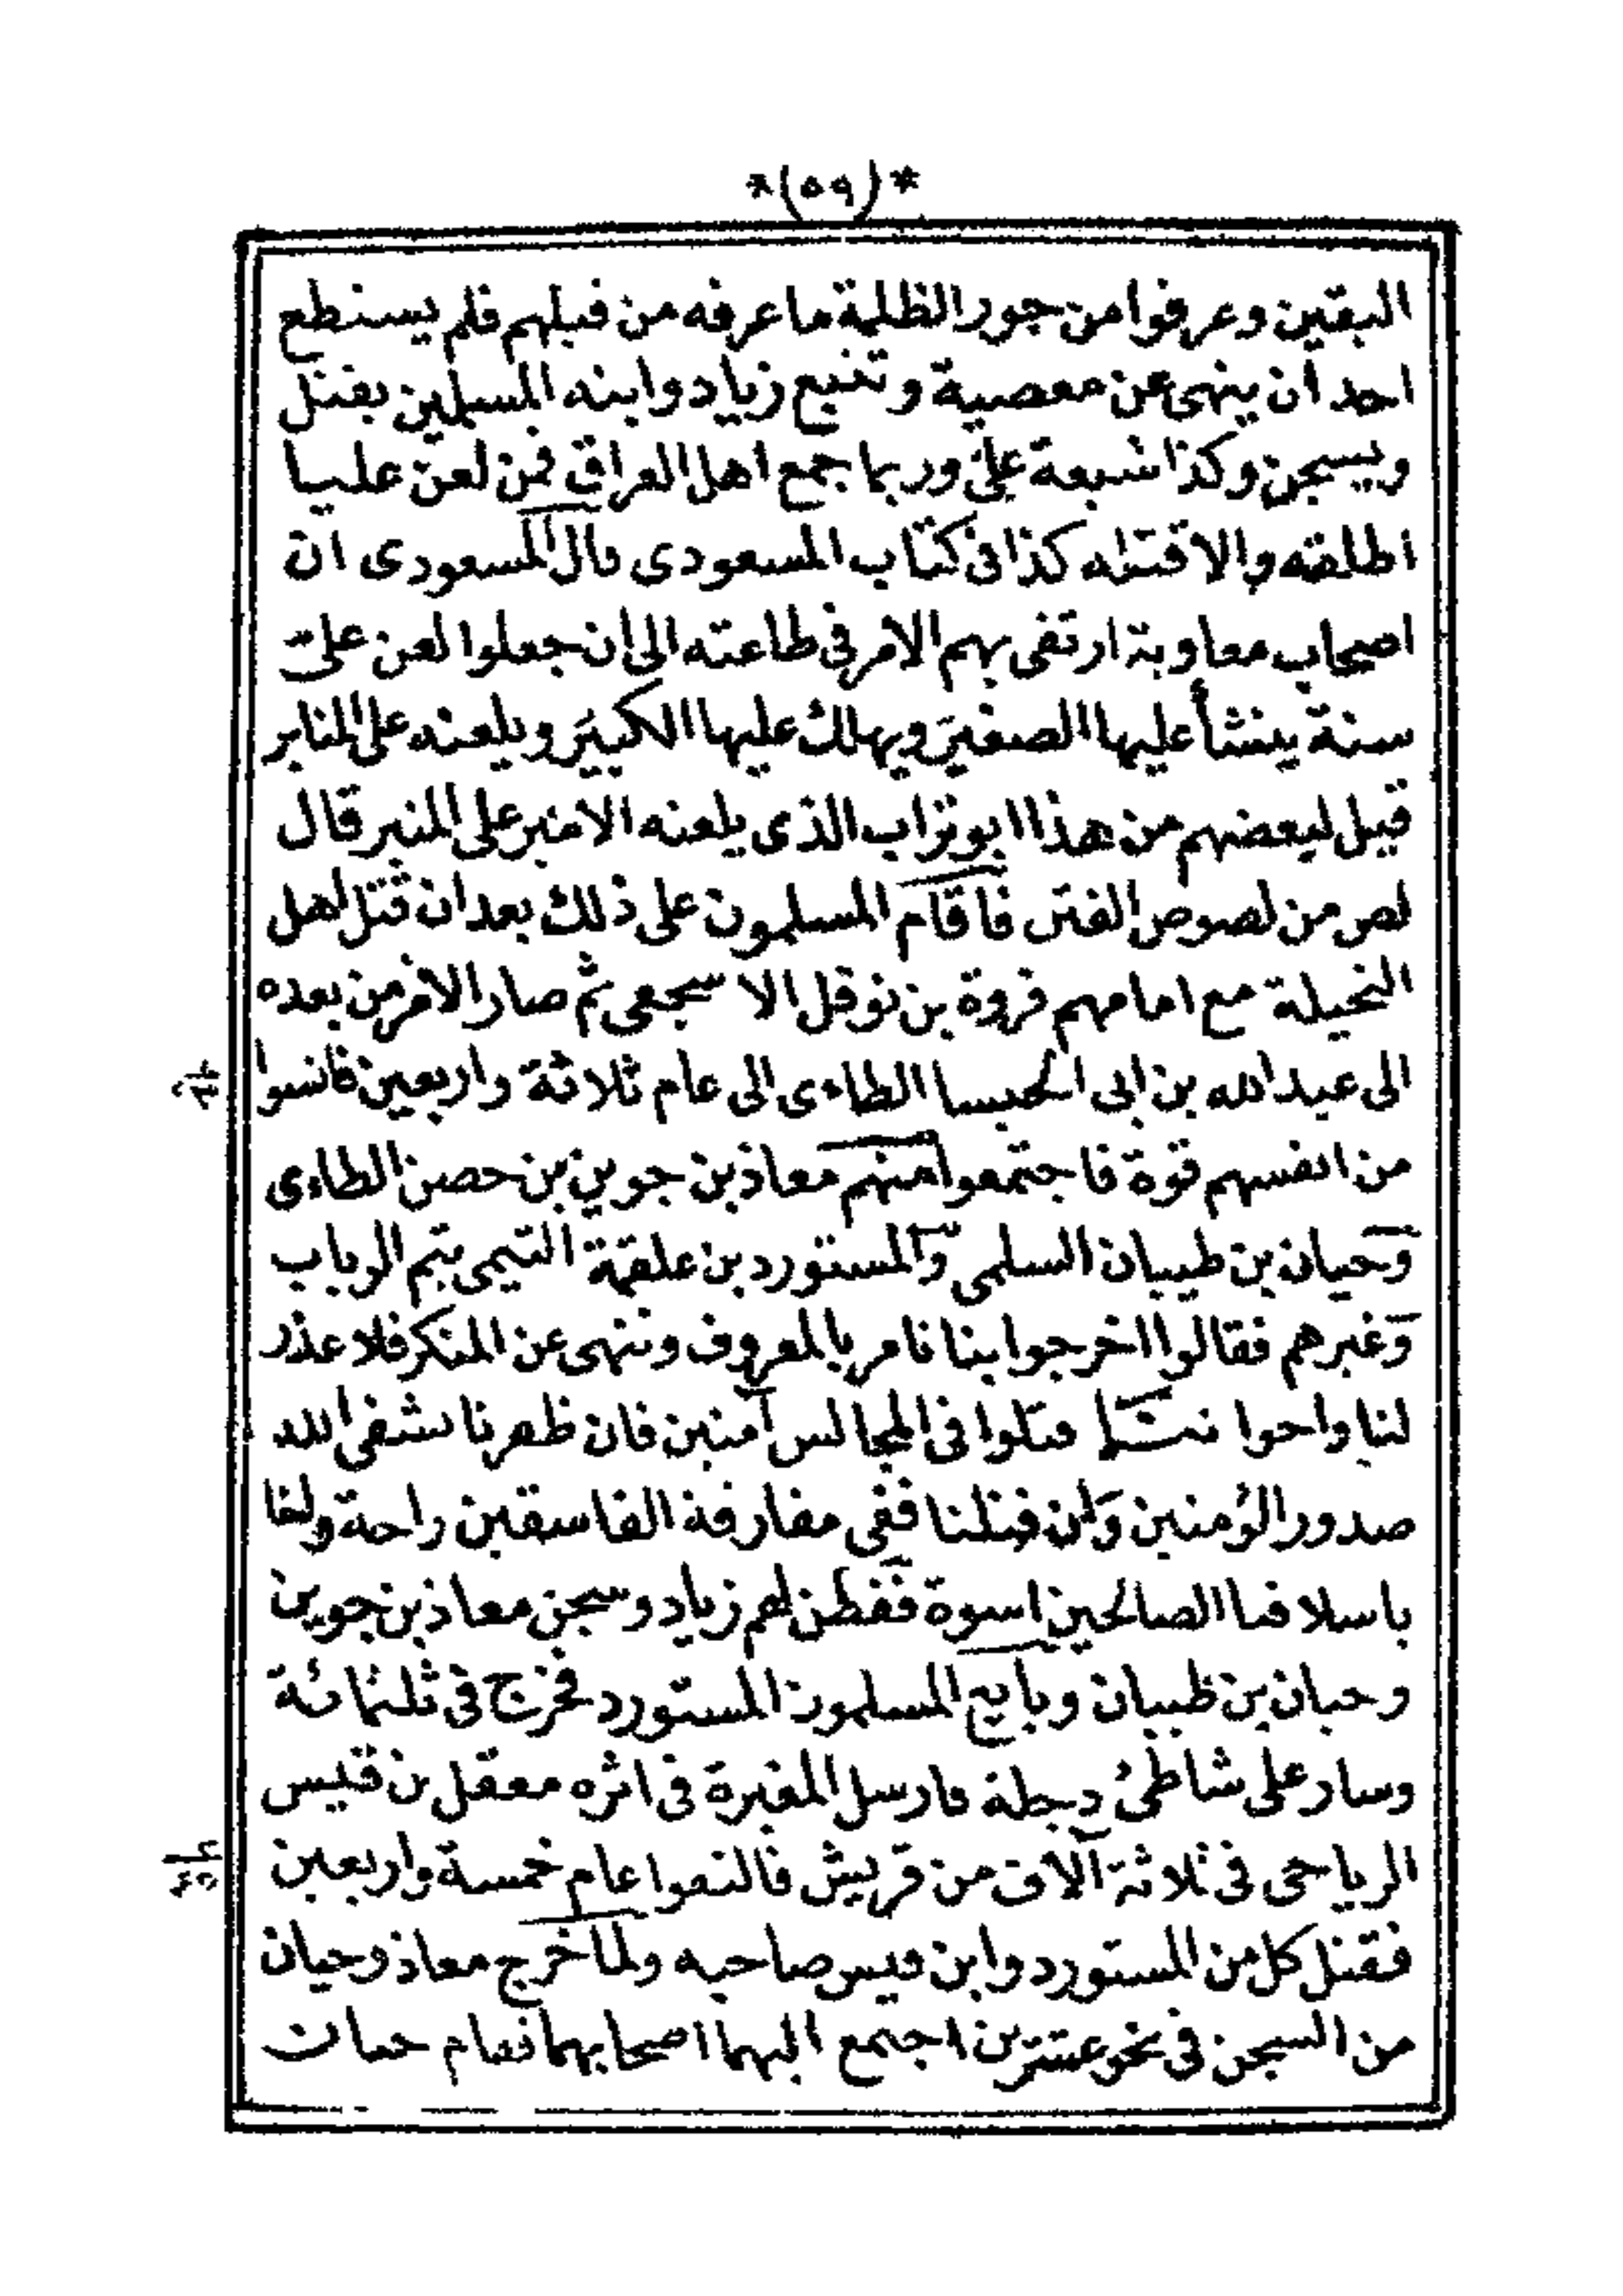 *(٥٩)*
اليقين وعرفوا من جور الظلمة ما عرفه من قبلهم فلم يستطع
احد ان ينهى عن معصية وتتبع زياد وابنه المسلمين بقتل
ويسجن وكذا شيعة علىّ وربما جمع اهل العراق فمن لعن عليا
اطلقه والا قتله كذا فى كتاب المسعودى قال المسعودى ان
اصحاب معاوية ارتقى بهم الامر فى طاعته الى ان جعلوا لعن علىّ
سنة ينشأ عليها الصغير ويهلك عليها الكبير ويلعنه على المنابر
قيل لبعضهم من هذا ابو تراب الذى يلعنه الامير على المنبر قال
لص من لصوص الفتن فاقام المسلمون على ذلك بعد ان قتل اهل
النخيلة مع امامهم فروة بن نوفل الاشجعى ثم صار الامر من بعده
الى عبد الله بن ابى الحبسا الطاءى الى عام ثلاثة واربعين فانسوا
من انفسهم قوة فاجتمعوا منهم معاذ بن جوين بن حصن الطاءى
وحيان بن ظبيان السلمى والمستورد بن علقمة التيمى تيم الرباب
وغيرهم فقالوا اخرجوا بنا نامر بالمعروف وننهى عن المنكر فلا عذر
لنا واخواننا قتلوا فى المجالس آمنين فان ظهرنا نشفى الله
صدور المؤمنين وان قتلنا ففى مفارقة الفاسقين راحة ولنا
باسلافنا الصالحين اسوة ففطن لهم زياد وسجن معاذ بن جوين
وحيان بن ظبيان وبايع المسلمون المستورد فخرج فى ثلثمائة
وسار على شاطئ دجلة فارسل المغيرة فى اثره معقل بن قيس
الرياحى فى ثلاثة آلاف من قريش فالتقوا عام خمسة واربعين
فقتل كل من المستورد وابن قيس صاحبه ولما خرج معاذ وحيان
من السجن فى نحو عشرين اجتمع اليهما اصحابهما فقام حيان